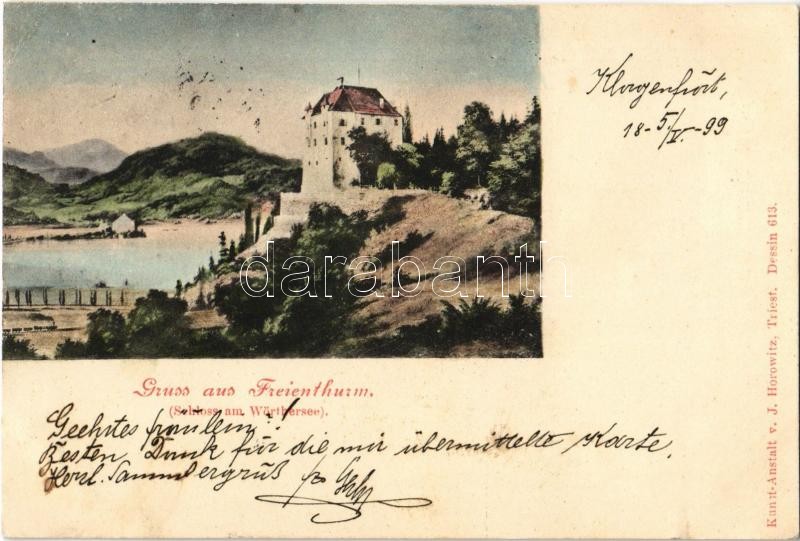 Klagenfurt,
18-5/V.-99
darabanth
Gruss aus Freienthurm.
(Schloss am Wörthersee).
Geehrtes Fräulein!
Besten Dank für die mir übermittelte Karte.
Herzl. Sammlergruß
Kunst-Anstalt v. J. Horowitz, Triest. Dessin 613.